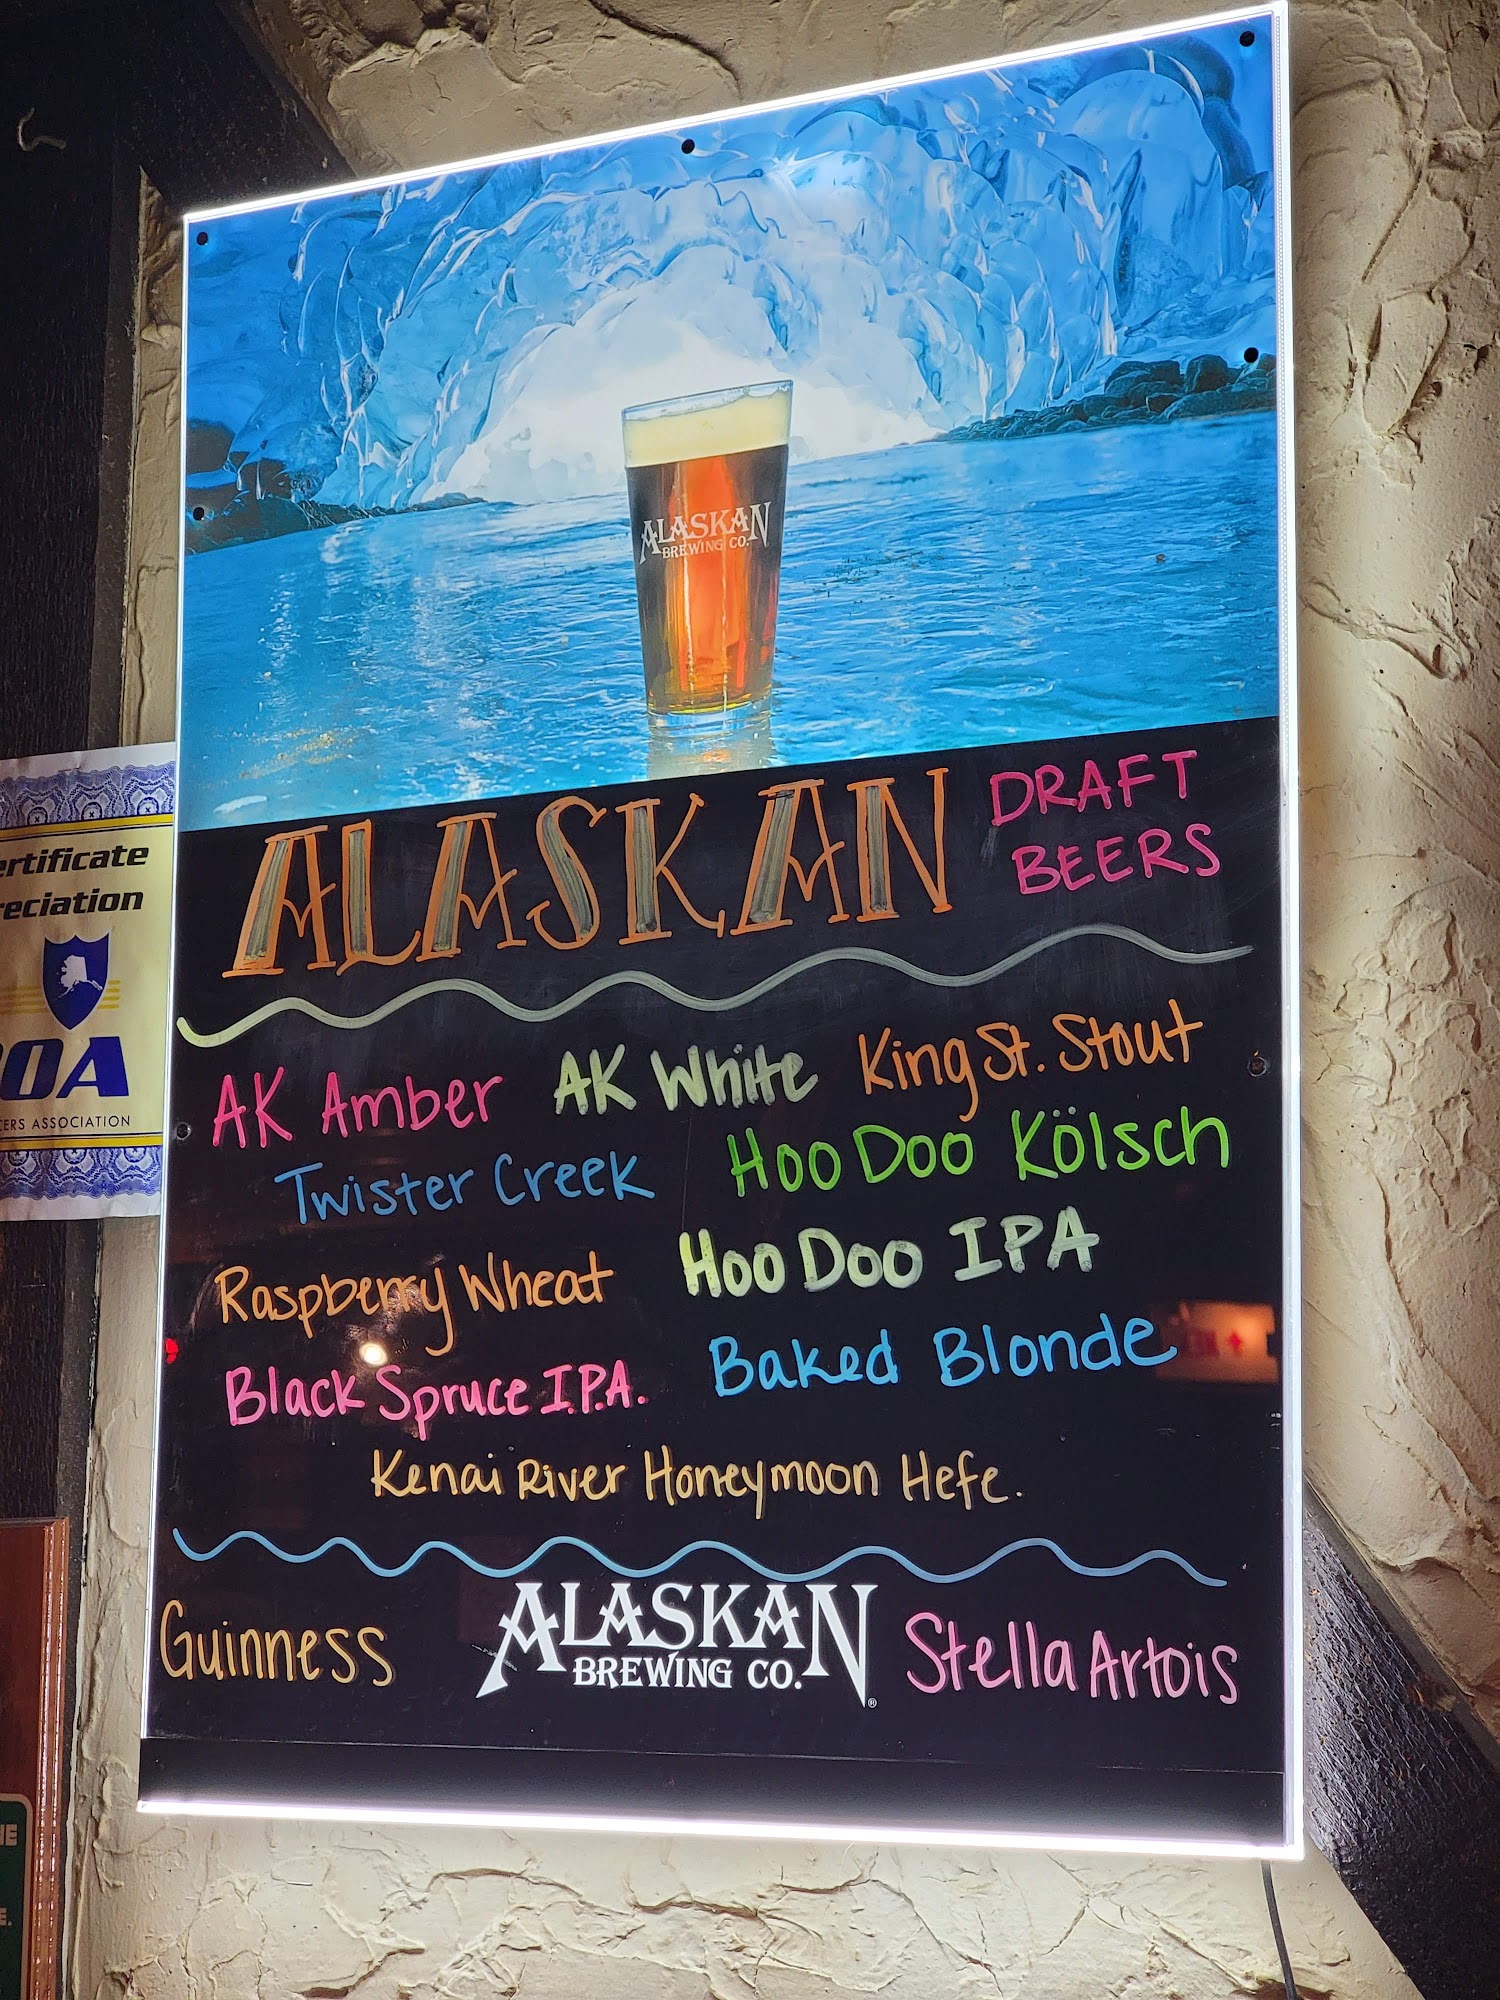 ALASKAN
BREWING CO.
ALASKAN
DRAFT
BEERS
AK Amber
AK White
King St. Stout
Twister Creek
HooDoo Kölsch
Raspberry Wheat
HooDoo IPA
Black Spruce I.P.A.
Baked Blonde
Kenai River Honeymoon Hefe.
Guinness
ALASKAN
BREWING CO.
®
Stella Artois
ertificate
reciation
OA
CERS ASSOCIATION
NE
E.